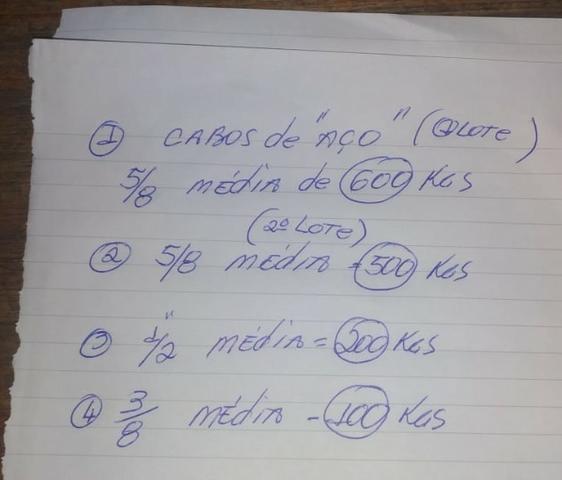 ① CABOS de "AÇO" (1º LOTE)
5/8 MÉDIA de 600 KGS
(2º LOTE)
② 5/8 MÉDIA = 500 KGS
③ 1/2" MÉDIA = 200 KGS
④ 3/8 MÉDIA - 100 KGS